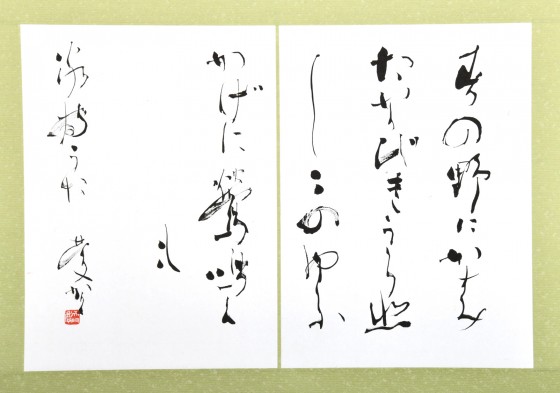 春の野にかすみ
たなびきうら悲
しこのゆふ
かげに鶯鳴く
も
家持うた